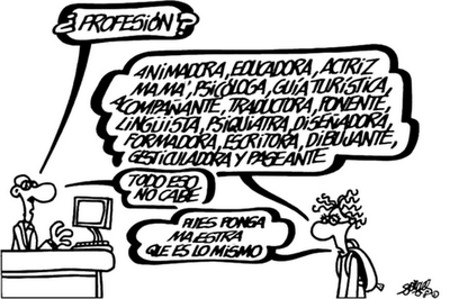 ¿PROFESIÓN?
ANIMADORA, EDUCADORA, ACTRIZ
MAMÁ, PSICÓLOGA, GUIA TURISTICA,
ACOMPAÑANTE, TRADUCTORA, PONENTE,
LINGÜISTA, PSIQUIATRA, DISEÑADORA,
FORMADORA, ESCRITORA, DIBUJANTE,
GESTICULADORA Y PASEANTE
TODO ESO
NO CABE
PUES PONGA
MAESTRA
QUE ES LO MISMO